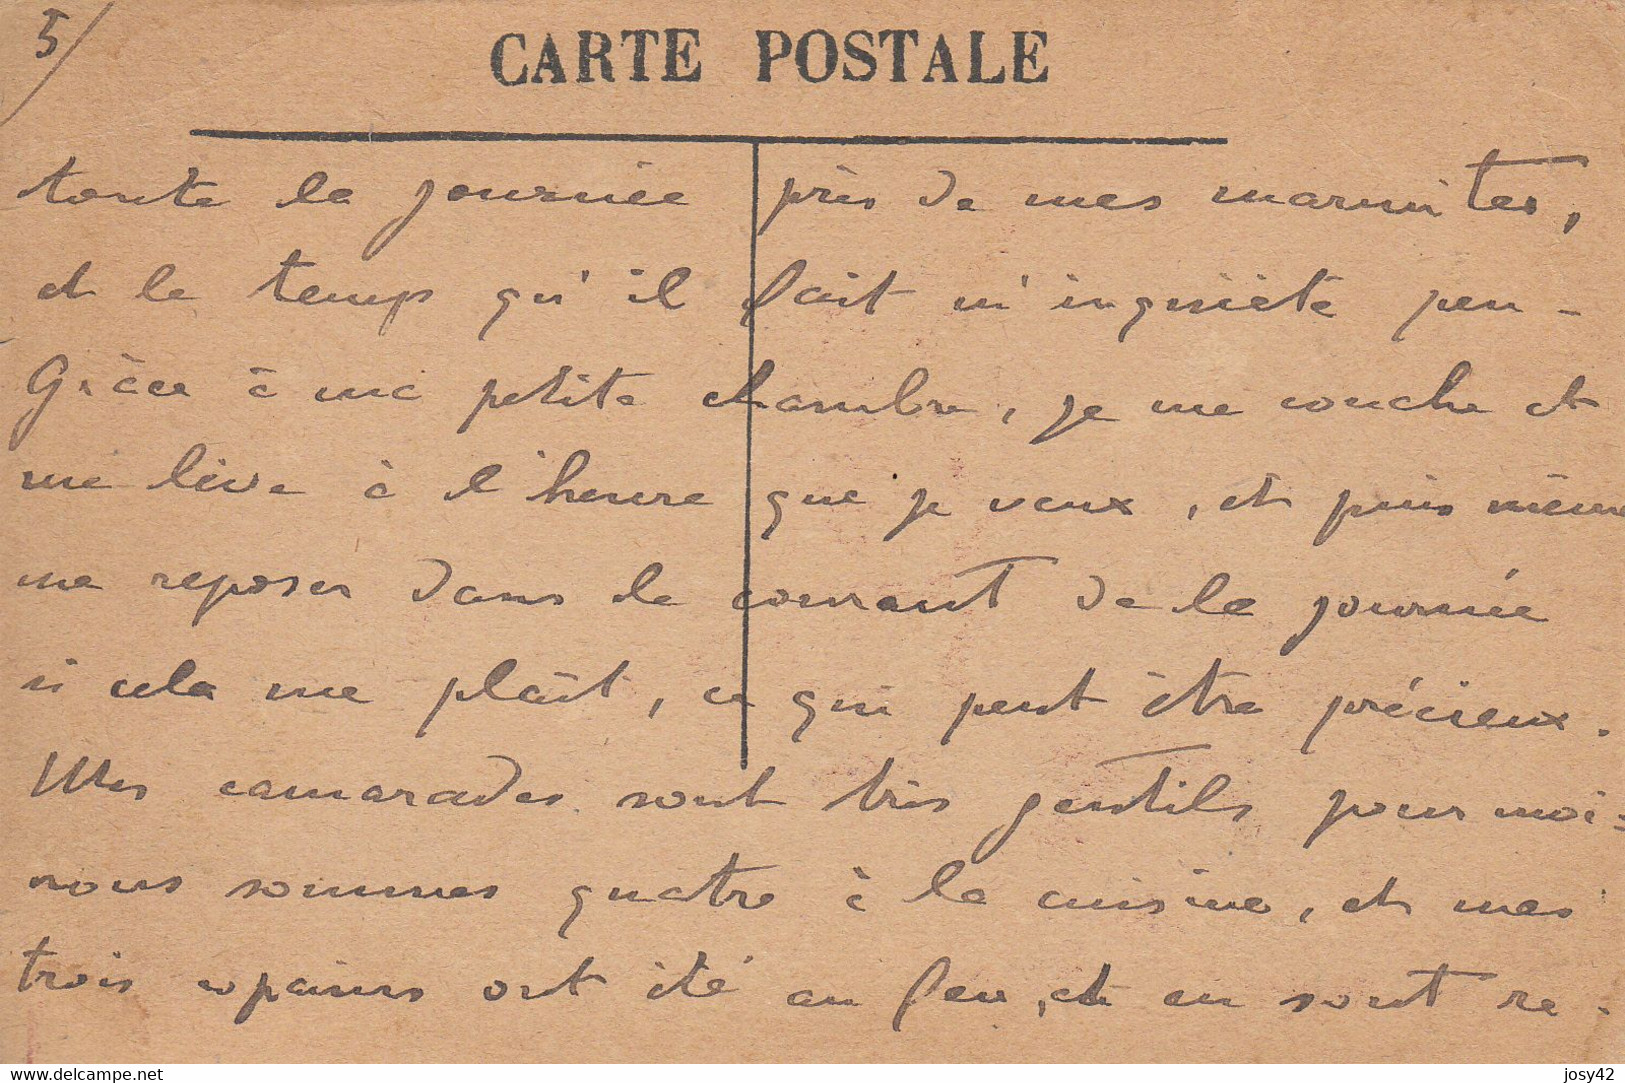 5/
CARTE POSTALE
toute la journée près de mes marmites,
et le temps qu'il fait m'inquiète peu -
Grâce à ma petite chambre, je me couche et
me lève à l'heure que je veux, et puis même
me reposer dans le courant de la journée
si cela me plaît, ce qui peut être précieux.
Mes camarades sont très gentils pour moi -
nous sommes quatre à la cuisine, et mes
trois copains ont été au feu, et en sont re-
www.delcampe.net
josy42